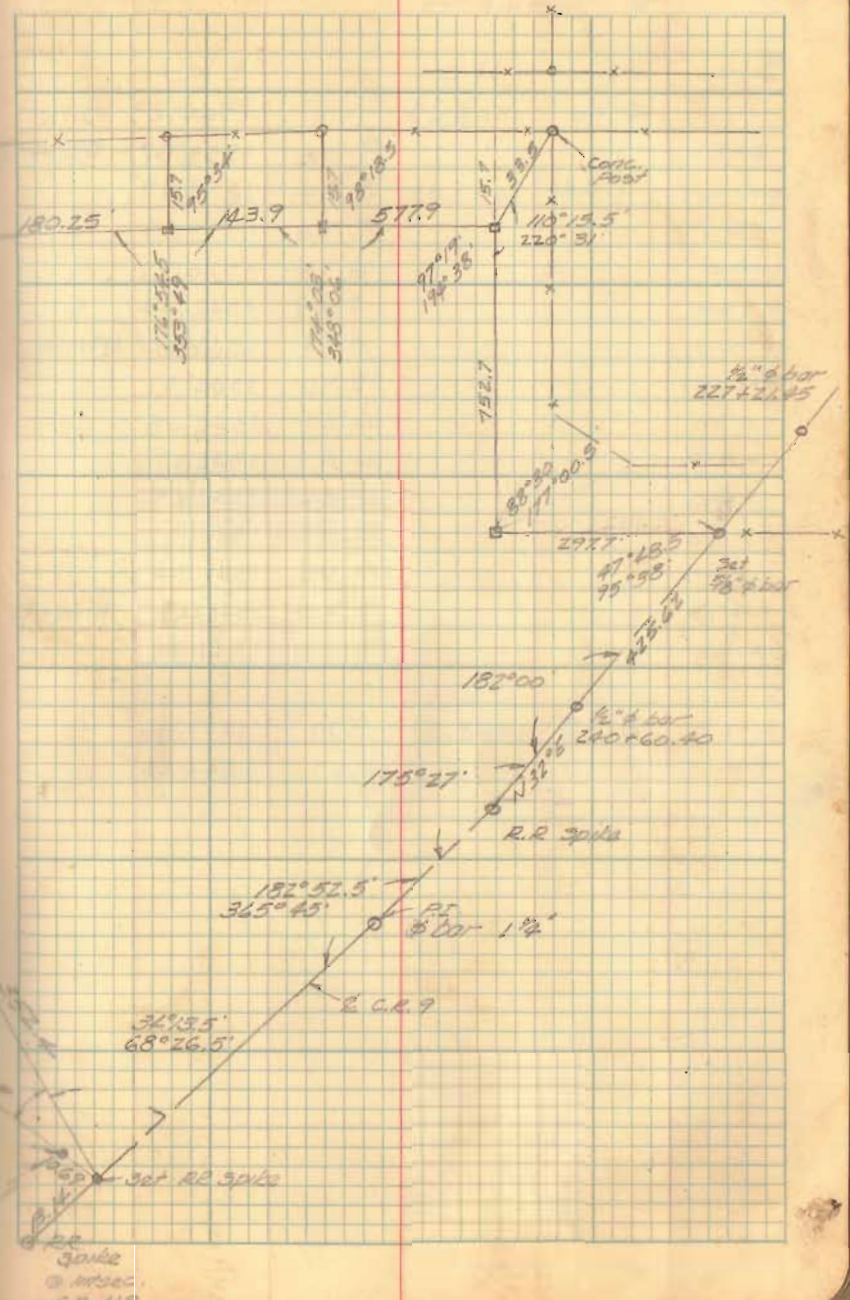 Conc.
Post
15.7
95°34'
15.7
98°18.5
15.7
33.5
180.25'
143.9
577.9
110°15.5'
220°31'
97°19'
194°38'
176°54.5
353°49
174°03'
348°06'
752.7
1/2" ϕ bar
227+21.45
88°30'
177°00.5'
297.7'
47°48.5
95°38'
Set
5/8" ϕ bar
425.62
182°00'
1/2" ϕ bar
240+60.40
175°27'
R.R Spike
182°52.5'
365°45'
P.I
ϕ bar 1 1/4"
℄ C.R. 9
34°13.5'
68°26.5'
Set RR Spike
RR
Spike
@ Intsec.